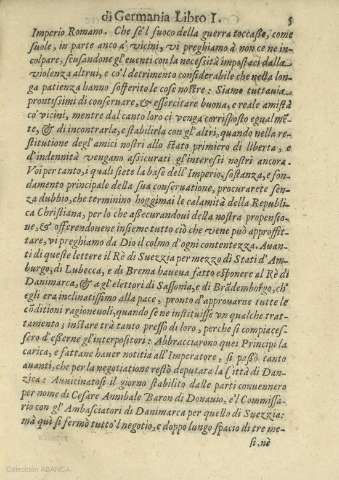 di Germania Libro I. 5
Imperio Romano. Che se'l fuoco della guerra toccasse, come
suole, in parte anco à vicini, vi preghiamo à non ce ne in-
colpare, scusandone gl'euenti con la necessità impostaci dalla
violenza altrui, e co'l detrimento considerabile che nella lon-
ga patienza hanno sofferito le cose nostre: Siamo tuttauia
prontissimi di conseruare, & essercitare buona, e reale amistà
co' vicini, mentre dal canto loro ci venga corrisposto egualmē-
te, & di incontrarle, e stabilirla con gl'altri, quando nella re-
stitutione degl'amici nostri allo stato primiero di liberta, e
d'indennità vengano assicurati gl'interessi nostri ancora.
Voi per tanto, i quali siete la base dell'Imperio, sostanza, e fon-
damento principale della sua conseruatione, procurarete sen-
za dubbio, che terminino hoggimai le calamità della Republi-
ca Christiana, per lo che assecurandoui della nostra propensio-
ne, & offerendouene insieme tutto ciò che viene può approffit-
tare, vi preghiamo da Dio il colmo d'ogni contentezza. Auan-
ti di queste lettere il Rè di Suezzia per mezzo di Stati d'Am-
burgo, di Lubecca, e di Brema haueua fatto esponere al Rè di
Danimarca, & a gl'elettori di Sassonia, e di Brādemborgo, ch'
egli era inclinatissimo alla pace, pronto d'approuarne tutte le
cōditioni ragioneuoli, quando se ne instituisse vn qualche trat-
tamento; instare trà tanto presso di loro, perche si compiaces-
sero d'esserne gl'interpositori: Abbracciarono quei Principi la
carica, e fattane hauer notitia all'Imperatore, si passò tanto
auanti, che per la negotiatione restò deputata la Città di Dan-
zica: Auuicinatosi il giorno stabilito dalle parti conuennero
per nome di Cesare Annibale Baron di Donauio, e'l Commissa-
rio con gl'Ambasciatori di Danimarca per quello di Suezzia:
mà quì si fermò tutto'l negotio, e doppo lungo spacio di tre me-
si, nè
Colección ABANCA